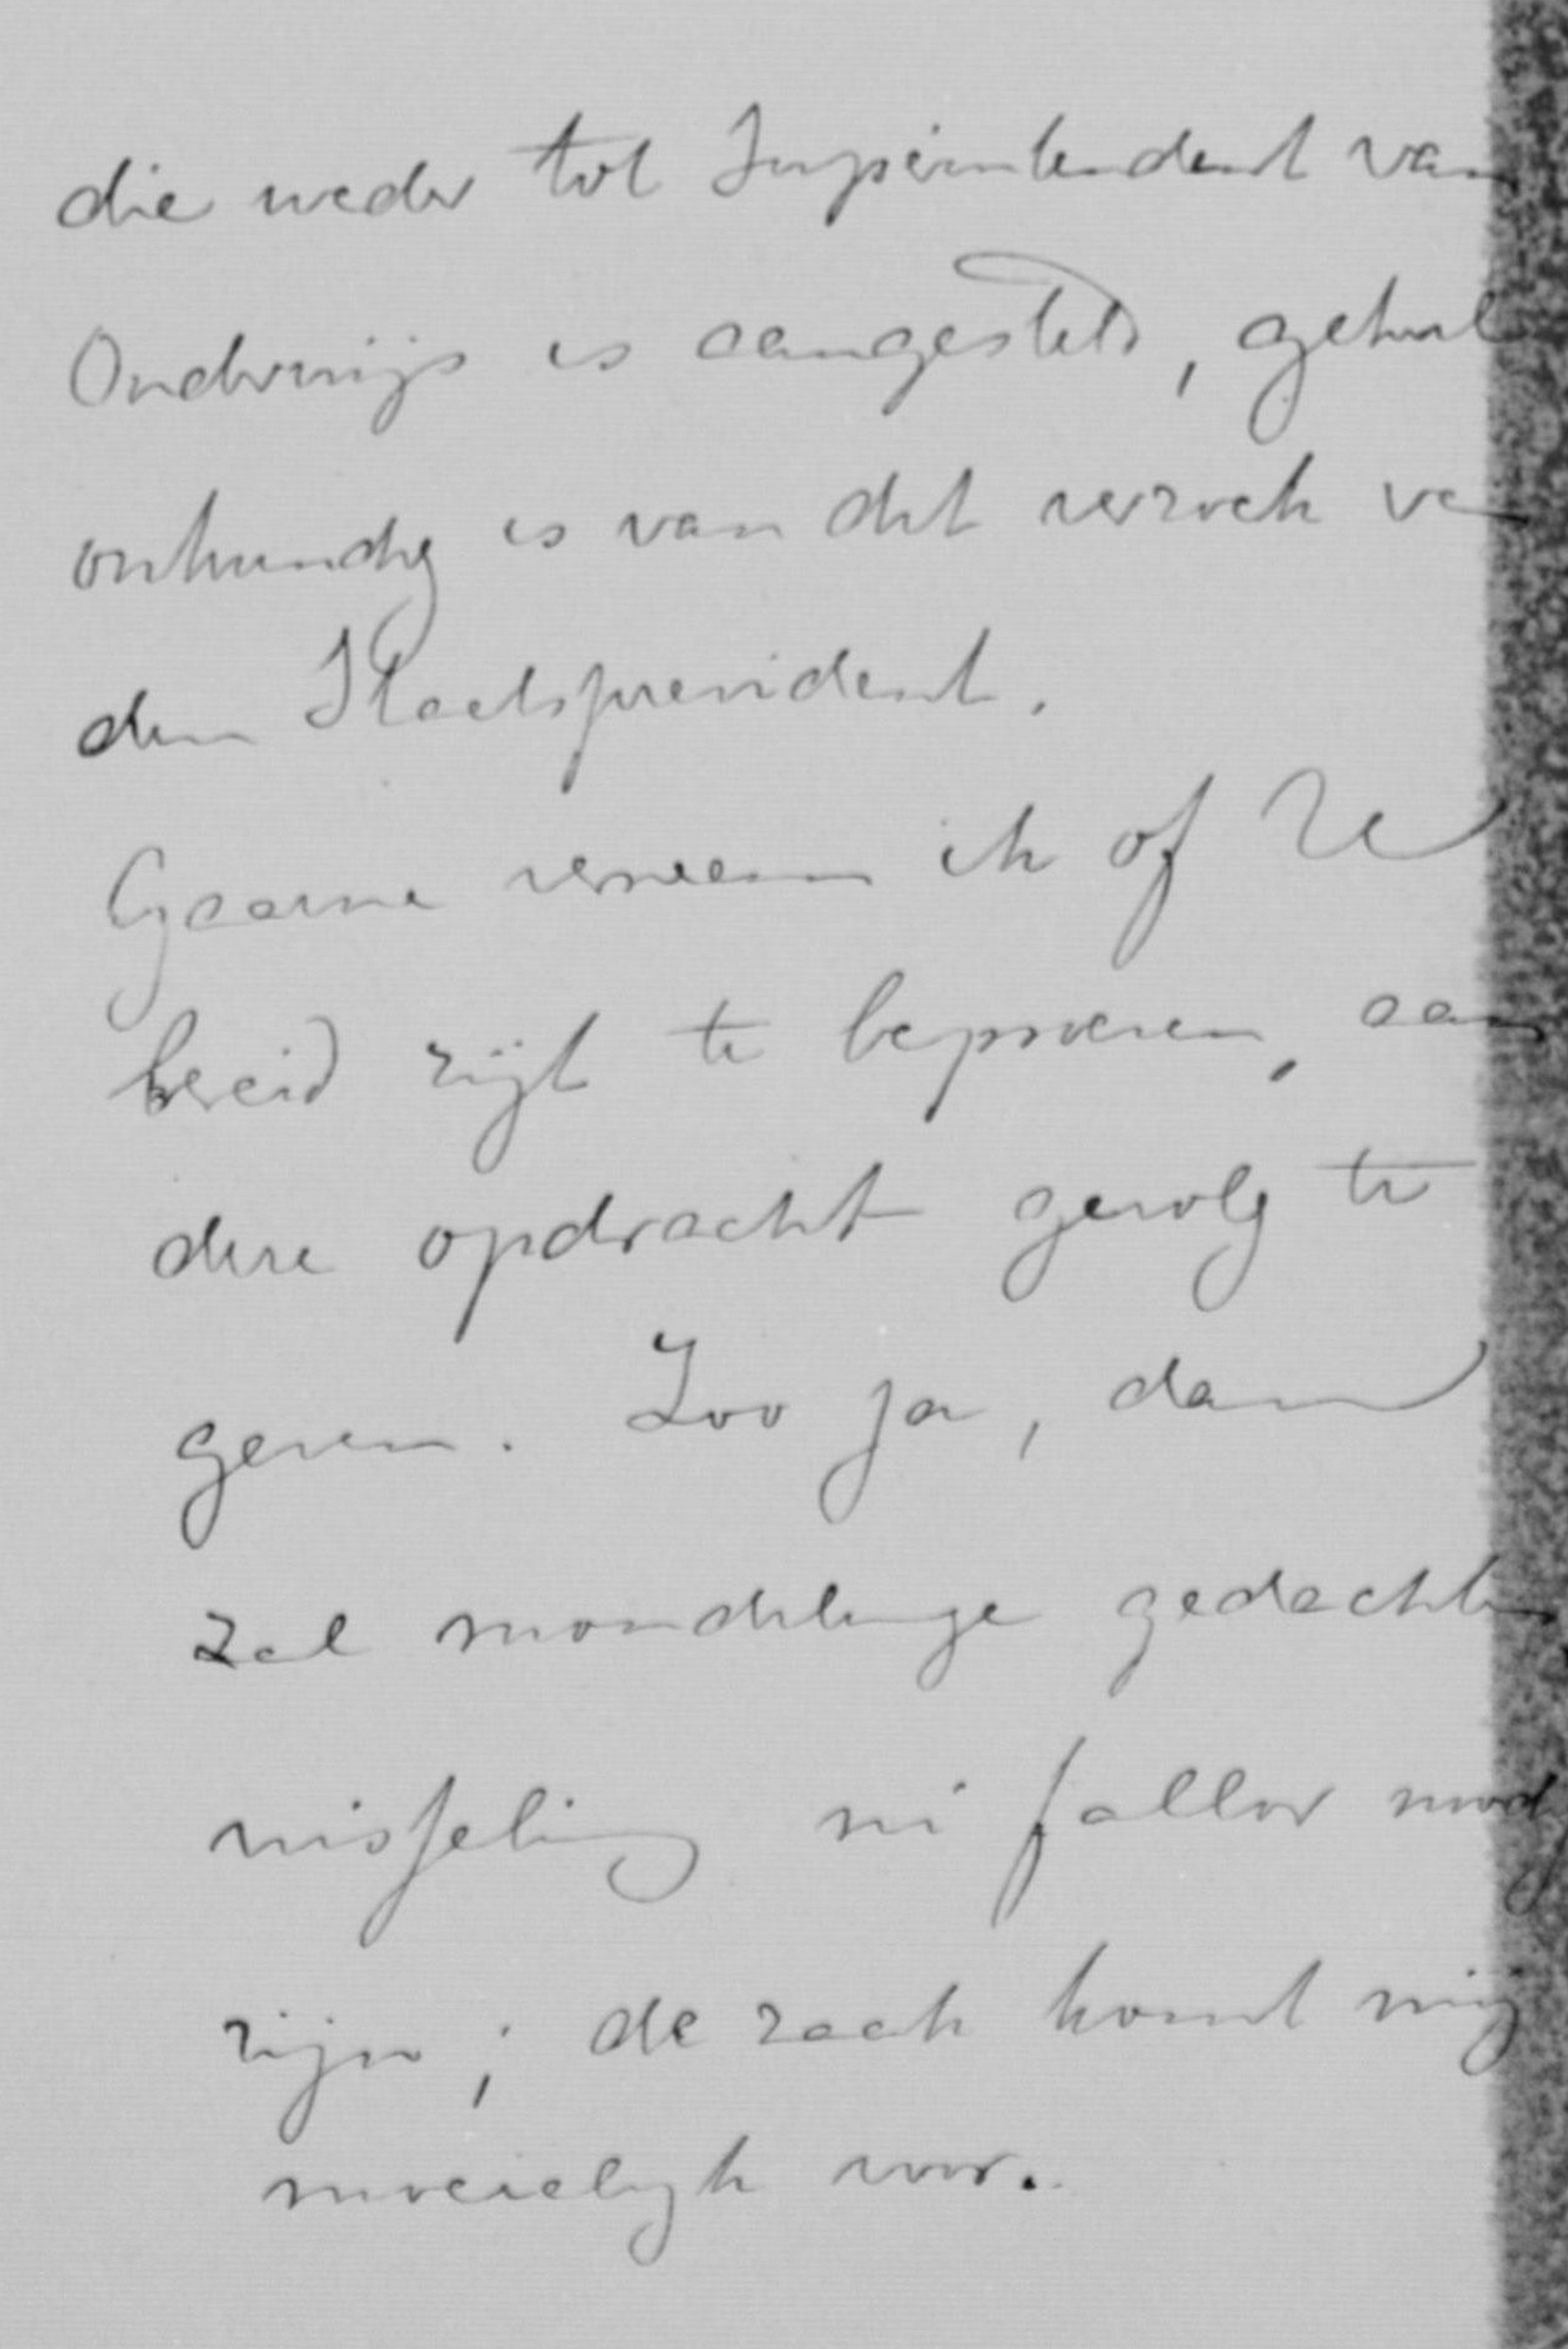 die weder tot Superintendent van
Onderwijs is aangesteld, geheel
onkundig is van dit verzoek van
den Staatspresident.
Gaarne verneem ik of U
bereid zijt te beproeven, aan
deze opdracht gevolg te
geven. Zoo ja, dan
zal mondelinge gedachten
wisseling ni fallor noodig
zijn; de zaak komt mij
moeielijk voor.